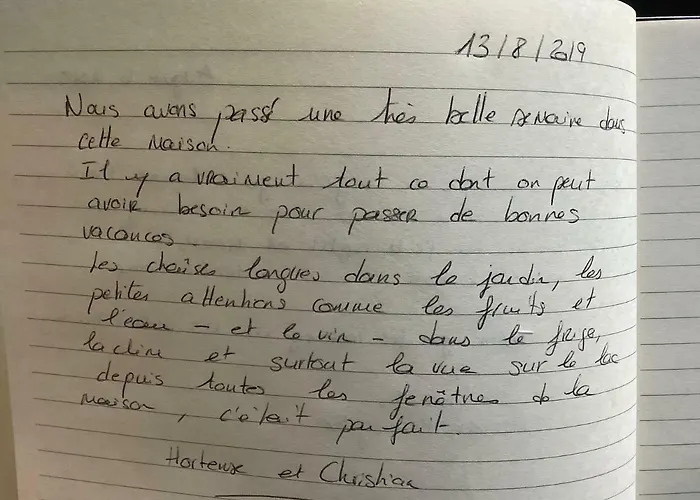 13/8/2019
Nous avons passé une très belle semaine dans
cette maison.
Il y a vraiment tout ce dont on peut
avoir besoin pour passer de bonnes
vacances.
Les chaises longues dans le jardin, les
petites attentions comme les fruits et
l'eau - et le vin - dans le frige,
la clim et surtout la vue sur le lac
depuis toutes les fenêtres de la
maison, c'était parfait.
Hortense et Christian